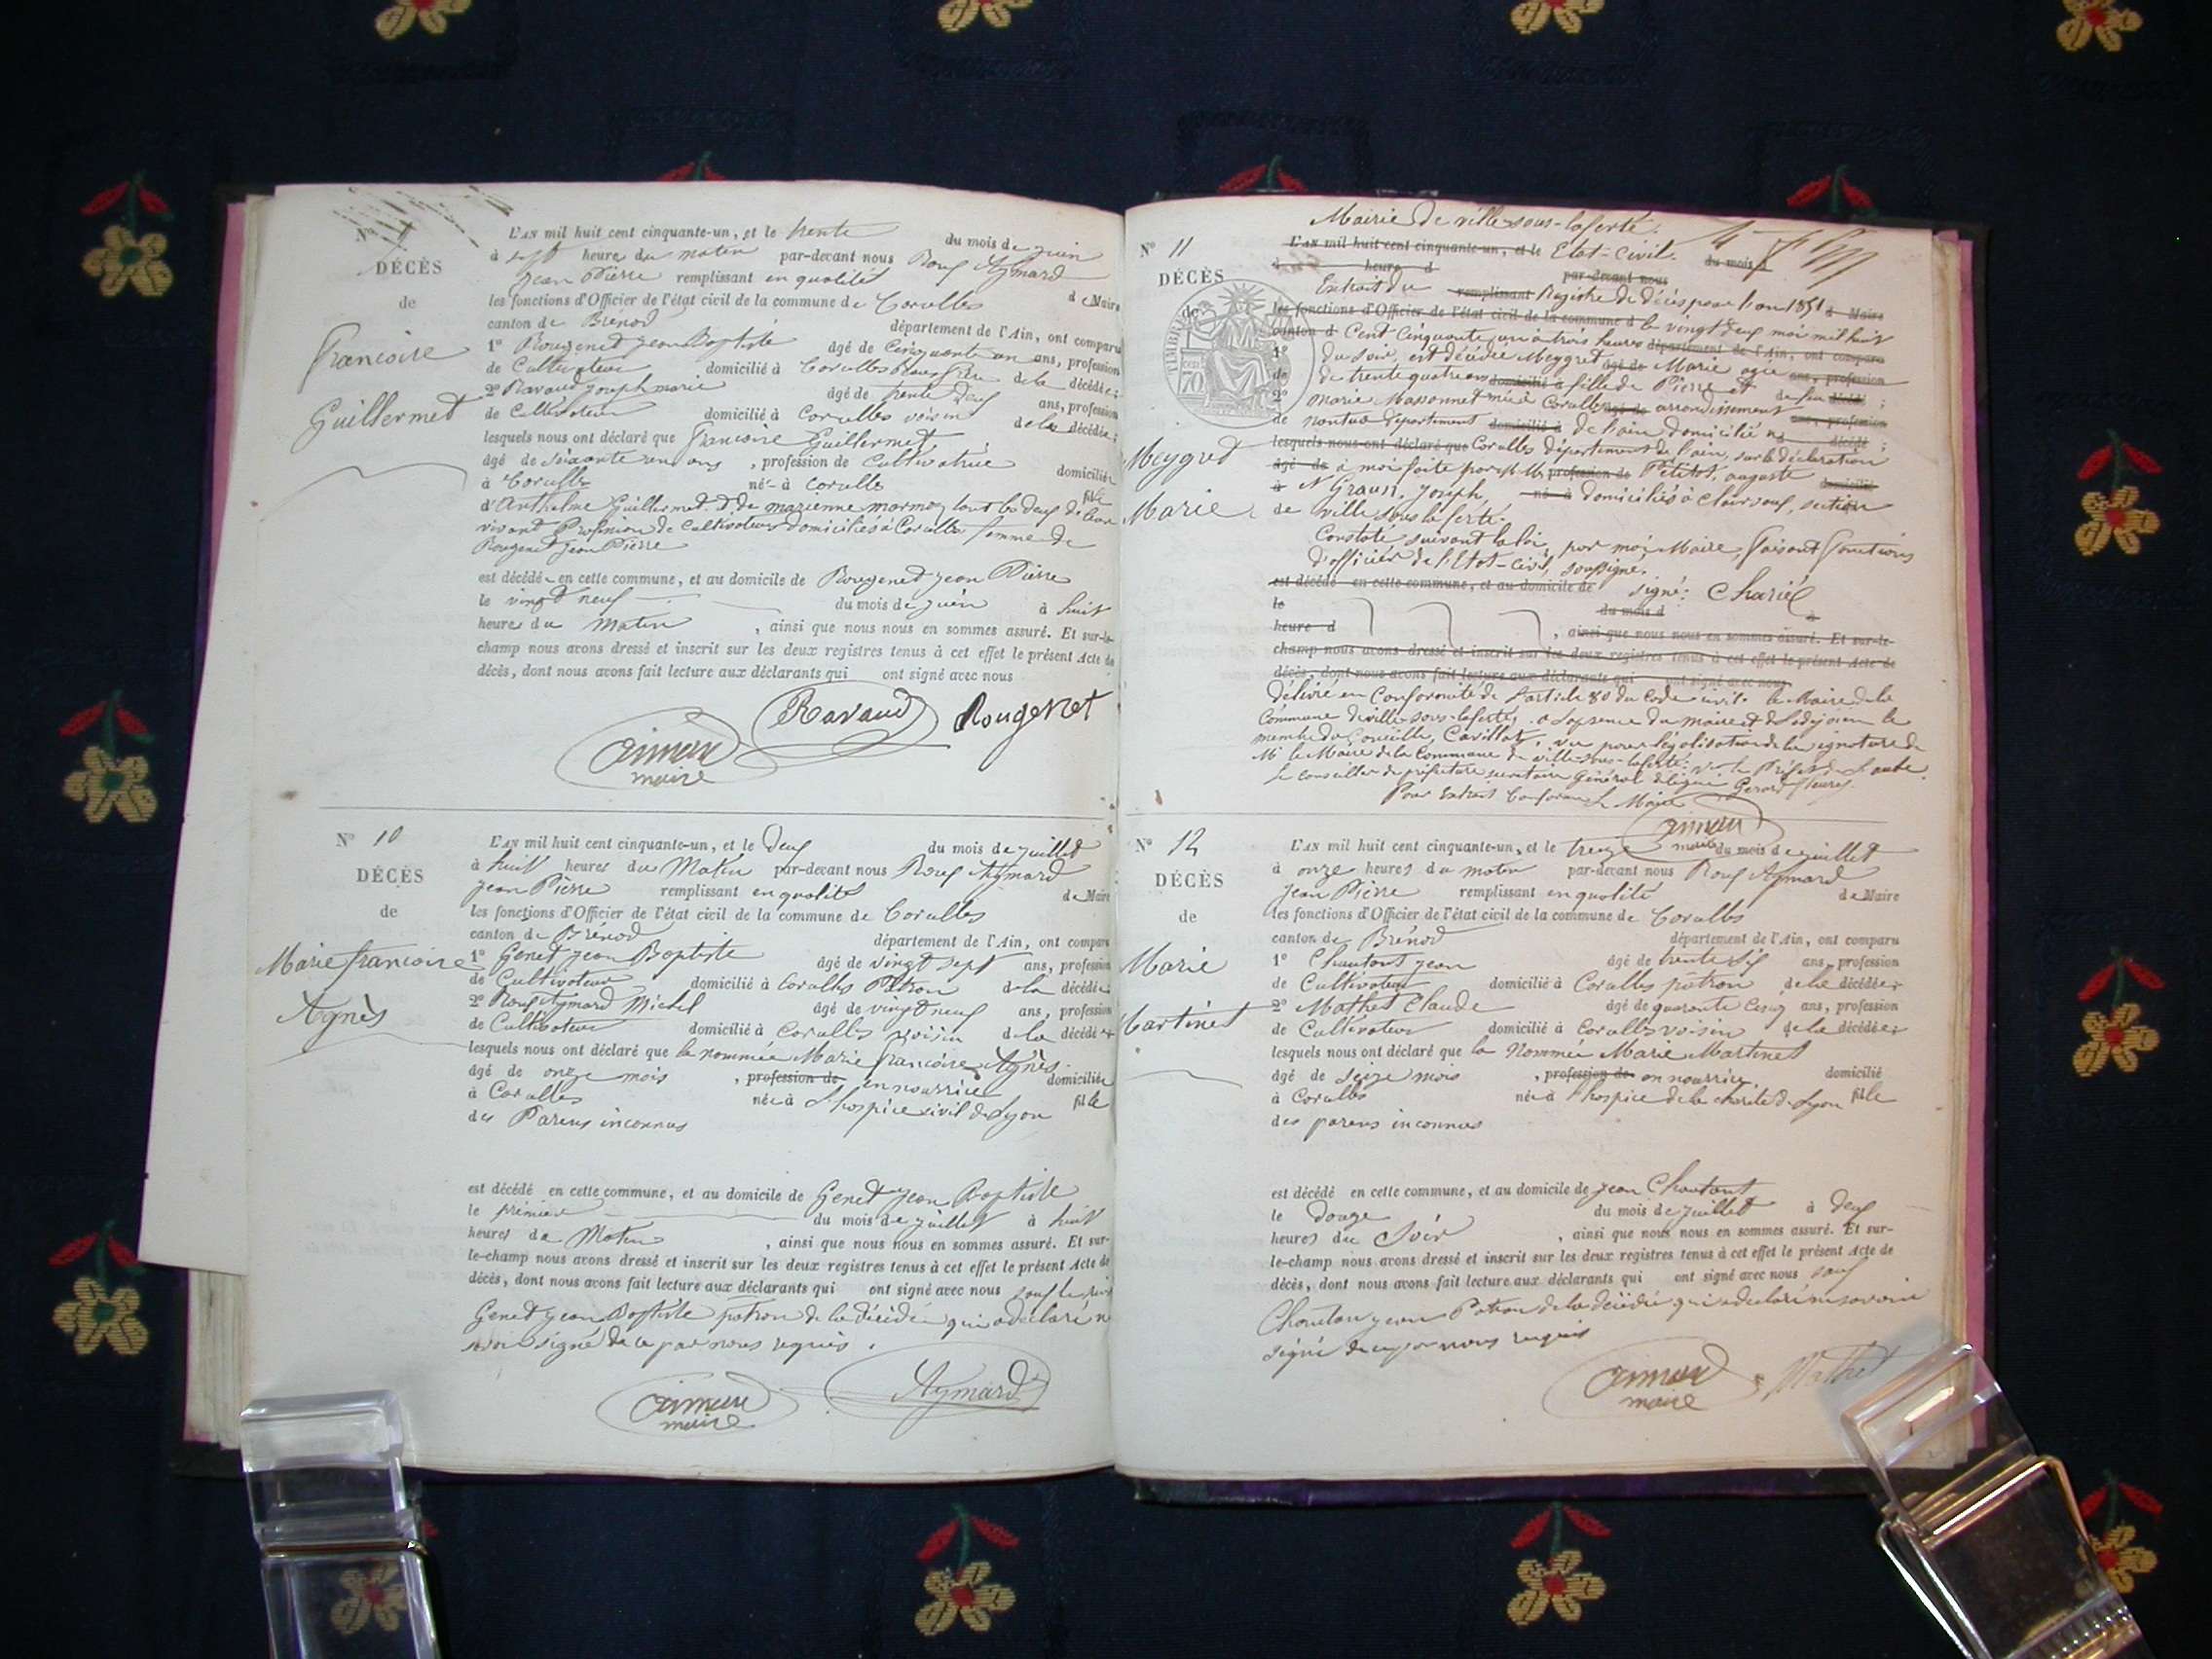 DÉCÈS
de
Francoise
Guillermet
L'AN mil huit cent cinquante-un, et le trente du mois de juin
à sept heures du matin par-devant nous Roux Aymard
Jean Pierre remplissant en qualité de Maire
les fonctions d'Officier de l'état civil de la commune de Corcelles
canton de Brénod département de l'Ain, ont comparu
1° Rougenet Jean Baptiste âgé de Cinquante un ans, profession
de Cultivateur domicilié à Corcelles Beau frère de la décédée;
2° Ravaud Joseph marie âgé de trente deux ans, profession
de Cultivateur domicilié à Corcelles voisin de la décédée;
lesquels nous ont déclaré que Francoise Guillermet,
âgé de soixante un ans, profession de Cultivatrice domiciliée
à Corcelles née à Corcelles fille
d'Anthelme Guillermet et de marienne tout les deux de leur
vivant Profession de cultivateur domiciliés à Corcelles femme de
Rougenet Jean Pierre
est décédée en cette commune, et au domicile de Rougenet Jean Pierre
le vingt neuf du mois de juin à huit
heures du Matin, ainsi que nous nous en sommes assuré. Et sur-le-
champ nous avons dressé et inscrit sur les deux registres tenus à cet effet le présent Acte de
décès, dont nous avons fait lecture aux déclarants qui ont signé avec nous
Ravaud Rougenet
aimard
maire
N° 10
DÉCÈS
de
Marie francoise
Agnès
L'AN mil huit cent cinquante-un, et le deux du mois de juillet
à huit heures du Matin par-devant nous Roux Aymard
Jean Pierre remplissant en qualité de Maire
les fonctions d'Officier de l'état civil de la commune de Corcelles
canton de Brénod département de l'Ain, ont comparu
1° Genet Jean Baptiste âgé de vingt sept ans, profession
de Cultivateur domicilié à Corcelles Patron de la décédée
2° Roux Aymard Michel âgé de vingt neuf ans, profession
de Cultivateur domicilié à Corcelles voisin de la décédée
lesquels nous ont déclaré que la nommée Marie francoise Agnès.
âgé de onze mois, profession de en nourrice domiciliée
à Corcelles née à L'hospice civil de Lyon fille
des Parens inconnus
est décédé en cette commune, et au domicile de Genet Jean Baptiste
le premier du mois de juillet à huit
heures du Matin, ainsi que nous nous en sommes assuré. Et sur-
le-champ nous avons dressé et inscrit sur les deux registres tenus à cet effet le présent Acte de
décès, dont nous avons fait lecture aux déclarants qui ont signé avec nous sauf le
Genet Jean Baptiste patron de la décédée qui a déclaré ne
savoir signé de ce par nous requis.
aimard
maire
Aymard
N° 11
DÉCÈS
de
Meygret
Marie
Mairie de ville-sous-laferté.
L'AN mil huit cent cinquante-un, et le Etat-civil. du mois d
à heure d par-devant nous
Extrait du remplissant Registre de décès pour l'an 1851 d Maire
les fonctions d'Officier de l'état civil de la commune d le vingt deux mai mil huit
canton d Cent Cinquante un à trois heures département de l'Ain, ont comparu
1° du soir, est décédée Meygret âgé de Marie agée ans, profession
de de trente quatre ans domicilié à fille de Pierre et de feu décédé;
2° Marie Massonnet née à Corcelles âgé de arrondissement ans, profession
de nantua département domicilié à de l'ain domicilié à décédé;
lesquels nous ont déclaré que Corcelles département de l'ain, sur la déclaration
âgé de à moi faite par profession de Petitot, auguste domicilié
à et Graun, Joseph, né à domiciliés à Clairvaux, section
de ville sous laferté.
Constaté suivant la loi, par moi, Maire, faisant fonctions
d'officier de l'Etat-civil, soussigné.
est décédé en cette commune, et au domicile de signé: Chariel
le du mois d à
heure d, ainsi que nous nous en sommes assuré. Et sur-le-
champ nous avons dressé et inscrit sur les deux registres tenus à cet effet le présent Acte de
décès, dont nous avons fait lecture aux déclarants qui ont signé avec nous
délivré en Conformité de l'article 80 du Code civil. le Maire de la
Commune de ville-sous-laferté, a L'absence du maire et de L'adjoint le
membre du Conseille, Cavillot, vu pour légalisation de la signature de
Mr le Maire de la Commune de ville-sous-laferté; le Préfet de L'aube.
Le conseiller de préfecture secrétaire Général délégué Gerard fleury.
Pour Extrait Conforme Le Maire
aimard
maire
N° 12
DÉCÈS
de
Marie
Martinet
L'AN mil huit cent cinquante-un, et le treize du mois de juillet
à onze heures du matin par-devant nous Roux Aymard
Jean Pierre remplissant en qualité de Maire
les fonctions d'Officier de l'état civil de la commune de Corcelles
canton de Brénod département de l'Ain, ont comparu
1° Chautant Jean âgé de trente six ans, profession
de Cultivateur domicilié à Corcelles patron de la décédée;
2° Mathet Claude âgé de quarante Cinq ans, profession
de Cultivateur domicilié à Corcelles voisin de la décédée;
lesquels nous ont déclaré que la Nommée Marie Martinet
âgé de seize mois, profession de en nourrice. domicilié
à Corcelles née à l'hospice de la charité de Lyon fille
des parens inconnus
est décédé en cette commune, et au domicile de Jean Chautant
le douze du mois de juillet à deux
heures du Soir, ainsi que nous nous en sommes assuré. Et sur-
le-champ nous avons dressé et inscrit sur les deux registres tenus à cet effet le présent Acte de
décès, dont nous avons fait lecture aux déclarants qui ont signé avec nous sauf
Chautan Jean Patron de la décédée qui a déclaré ne savoir
signé de ce par nous requis
aimard
maire
Mathet